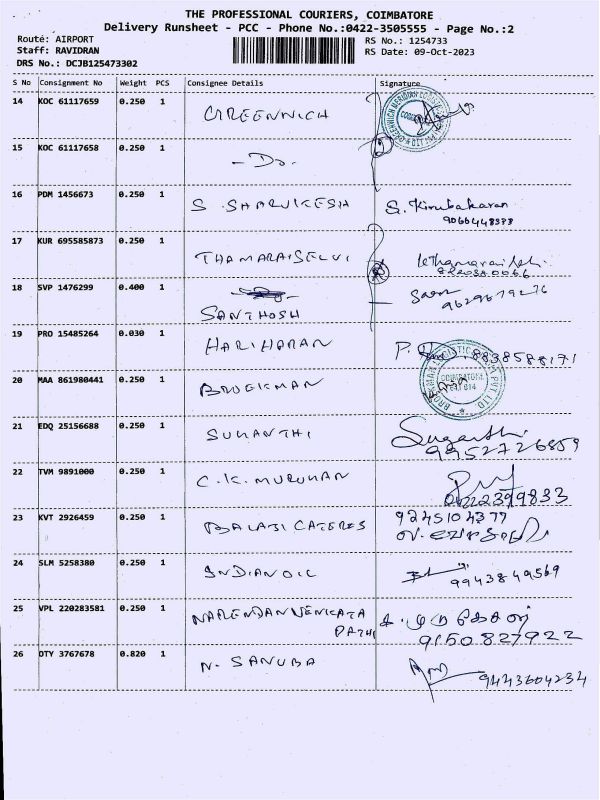 THE PROFESSIONAL COURIERS, COIMBATORE
Delivery Runsheet - PCC - Phone No.:0422-3505555 - Page No.:2
Route: AIRPORT
RS No.: 1254733
Staff: RAVIDRAN
RS Date: 09-Oct-2023
DRS No.: DCJB125473302
S No Consignment No Weight PCS Consignee Details Signature
14 KOC 61117659 0.250 1 GREENWICH
15 KOC 61117658 0.250 1 -Do-
16 PDM 1456673 0.250 1 S SHARVIKESH S. Kirubakaran
9066448373
17 KUR 695585873 0.250 1 THAMARAISELVI
18 SVP 1476299 0.400 1 SANTHOSH 9629679276
19 PRO 15485264 0.030 1 HARIHARAN P. 8838588171
20 MAA 861980441 0.250 1 BROEKMAN COIMBATORE
21 EDQ 25156688 0.250 1 SUMANTHI
9952726859
22 TVM 9891000 0.250 1 C.K. MURUHAN
04222399833
23 KVT 2926459 0.250 1 BALAJI CATERES 9245104377
24 SLM 5258380 0.250 1 INDIAN OIL 9943849569
25 VPL 220283581 0.250 1 NARENDAN VENKATA
PATHI
9150827922
26 DTY 3767678 0.820 1 N. SANUBA 9443604234